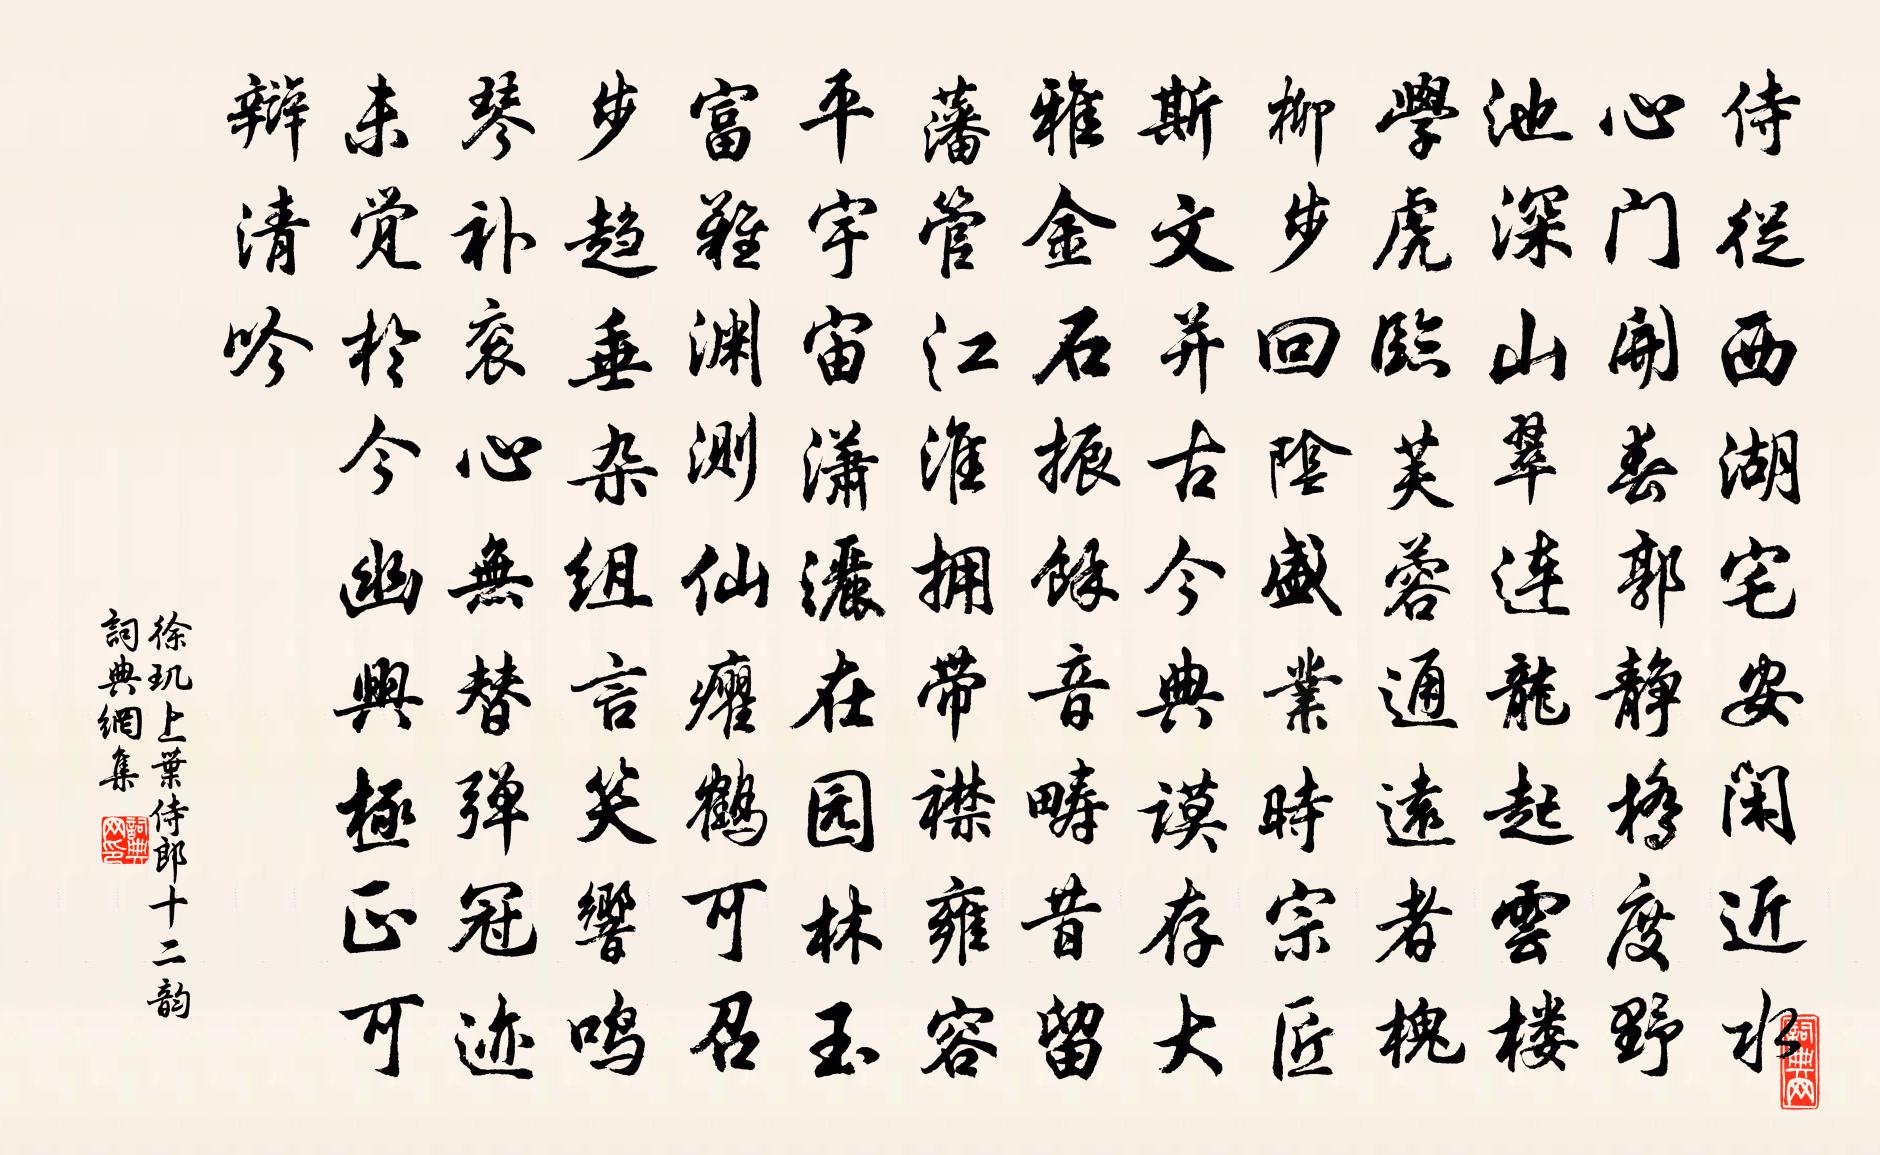 侍從西湖宅安闲近水
心门開春郭静橋度野
池深山翠连龍起雲楼
學虎臨芙蓉通遠者槐
柳步回陰盛業時宗匠
斯文并古今典谟存大
雅金石振餘音疇昔留
藩管江淮拥带襟雍容
平宇宙瀟灑在园林玉
富難渊测仙癯鹤可召
步趋垂杂组言笑響鸣
琴补衮心無替弹冠迹
未觉於今幽興極正可
辩清吟
徐玑上葉侍郎十二韵
詞典網集
詞典网印
詞典网